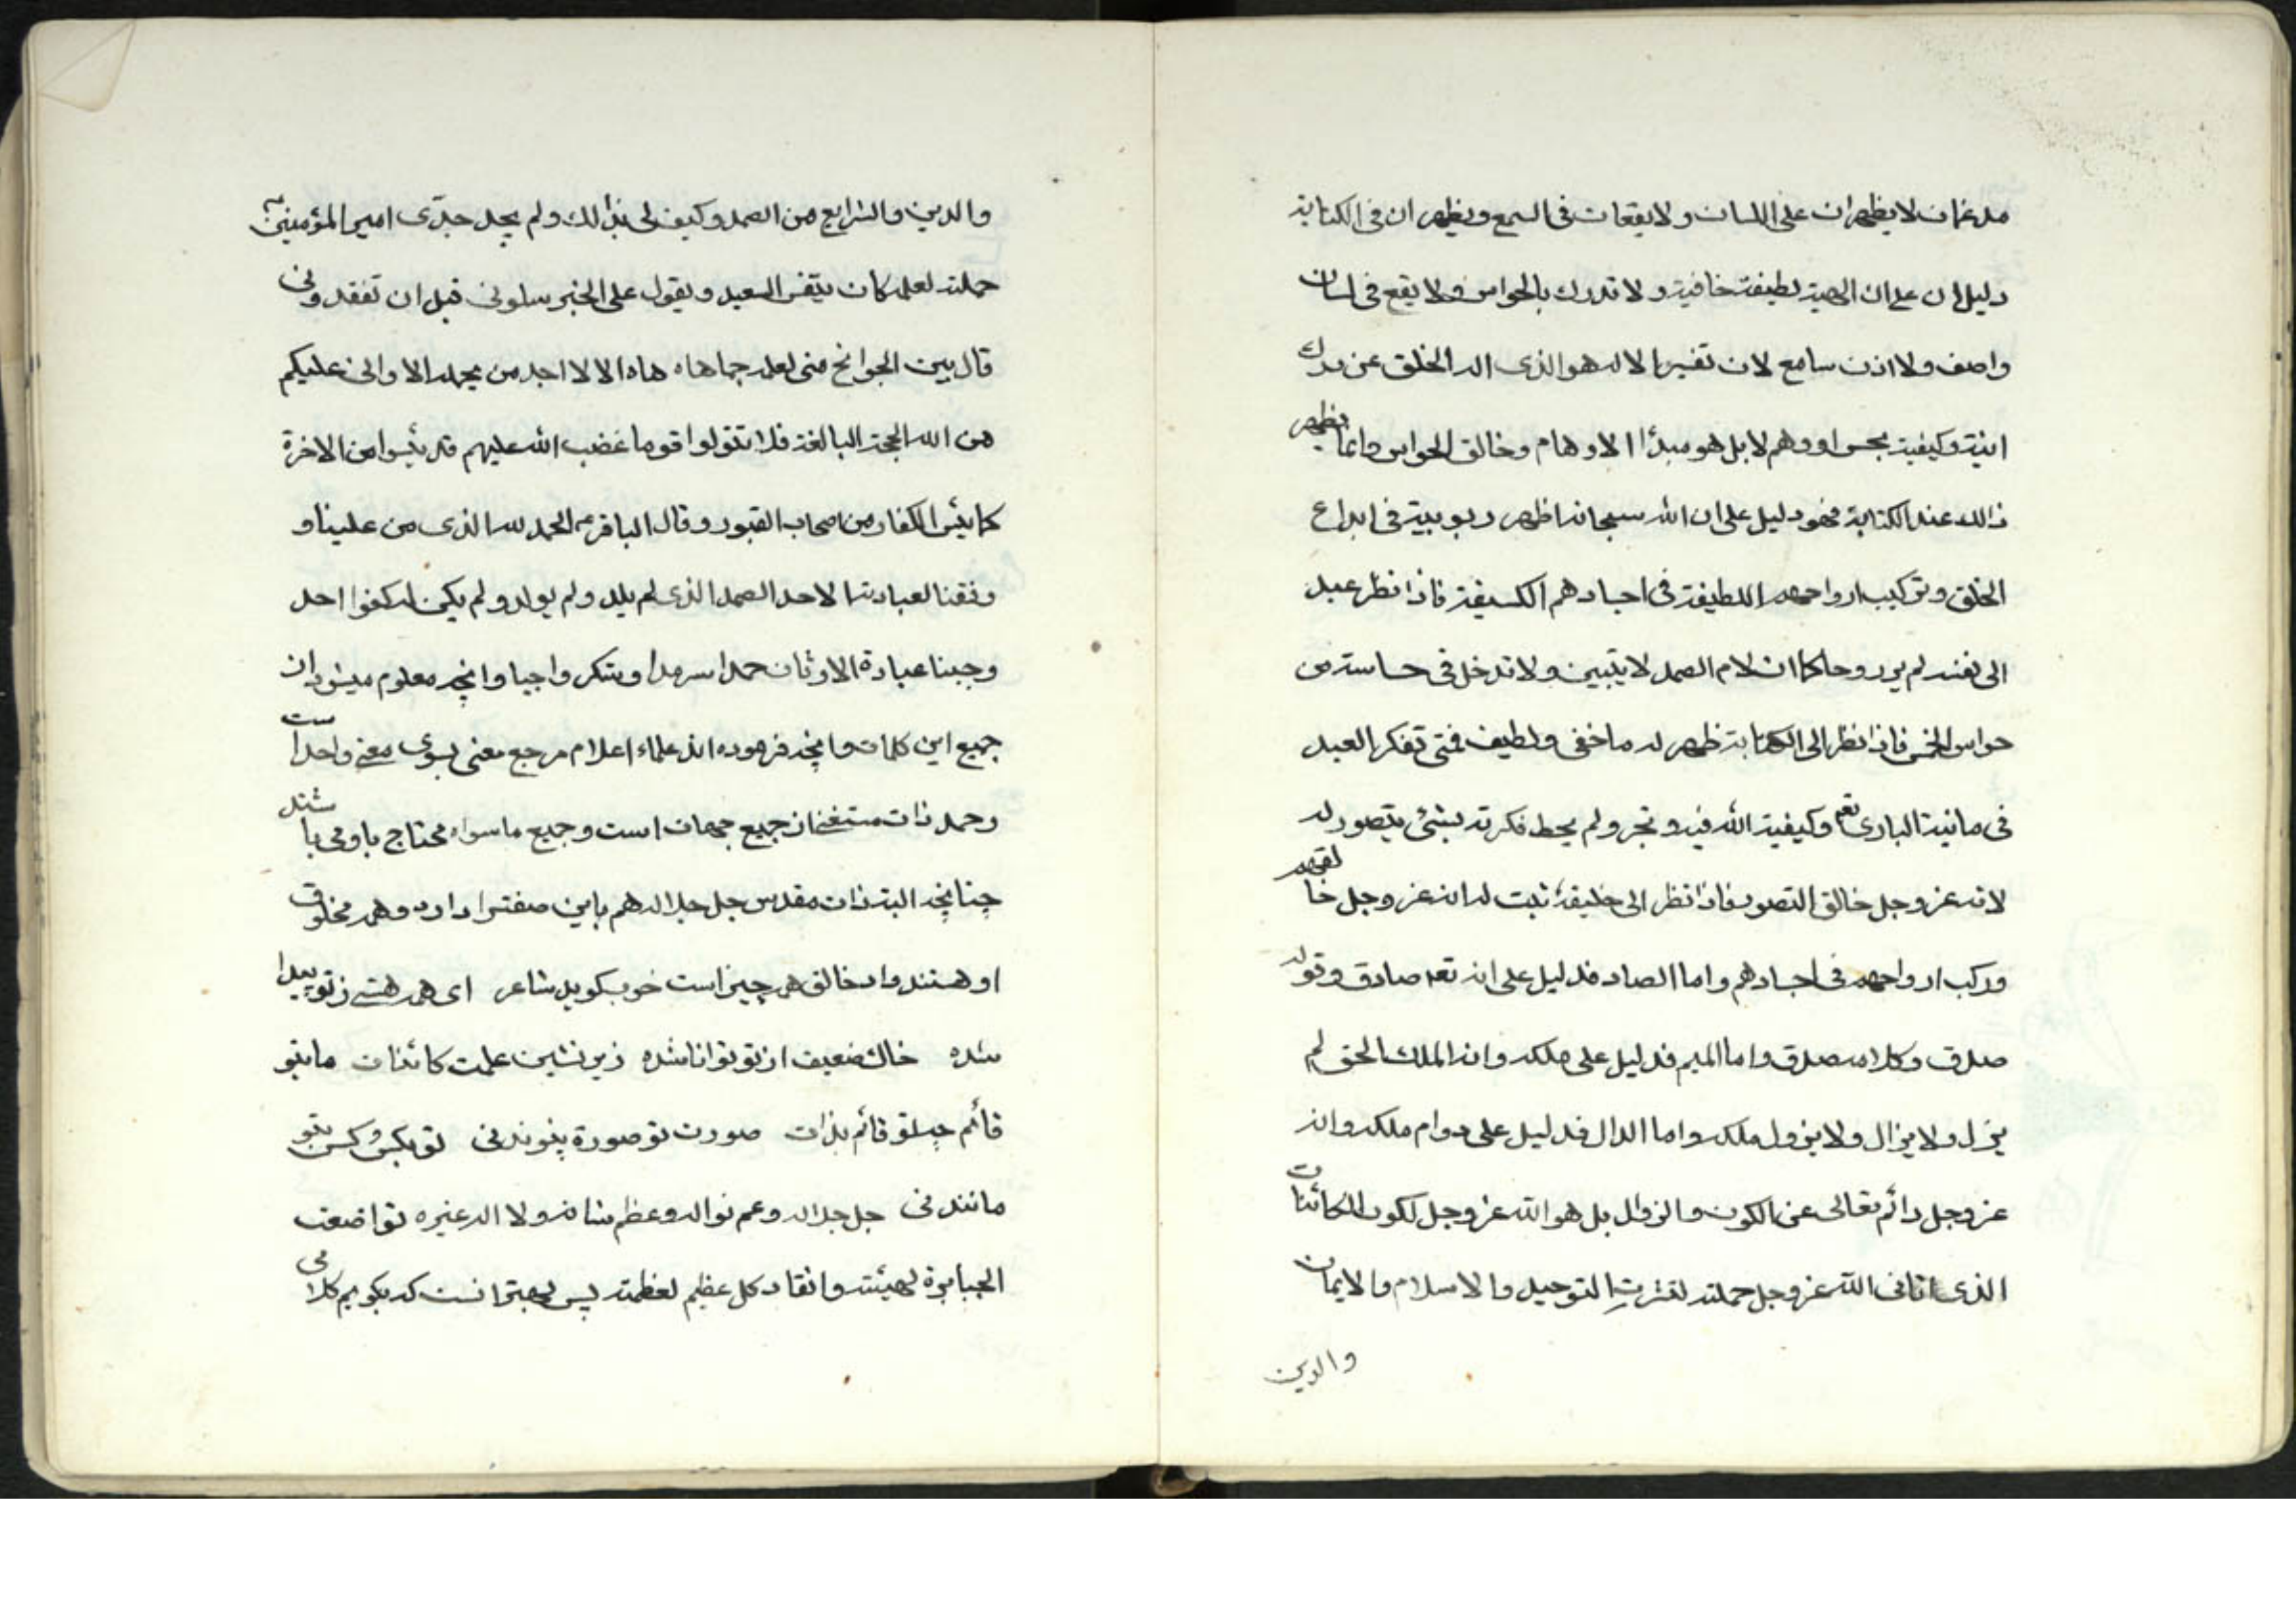 مدغمان لا يظهران على اللسان ولا يقعان فى السمع ويظهران فى الكتابة
دليلان على ان الهيته لطيفة خافية ولا تدرك بالحواس ولا يقع فى لسان
واصف ولا اذن سامع لان تفسير الاله هو الذى اله الخلق عن درك
انيته وكيفيته بحس او وهم لا بل هو مبدأ الاوهام وخالق الحواس وانما يظهر
ذالك عند الكتابة فهو دليل على ان الله سبحانه اظهر ربوبيته فى ابداع
الخلق وتركيب ارواحهم اللطيفة فى اجسادهم الكسيفة فاذا نظر عبد
الى نفسه لم ير روحه كما ان لام الصمد لا يتبين ولا تدخل فى حاسة من
حواس الخمس فاذا نظر الى الكتابة ظهر له ما خفى ولطيف فمتى تفكر العبد
فى مانية البارى تعم وكيفيته الله فيه وتحير ولم يحط فكرته بشئ يتصور له
لانه عز وجل خالق التصور فاذا نظر الى خليقه ثبت له انه عز وجل خالقهم
وركب ارواحهم فى اجسادهم واما الصاد فدليل على انه تعم صادق وقوله
صدق وكلامه صدق واما الميم فدليل على ملكه وانه الملك الحق لم
يزل ولا يزال ولا يزول ملكه واما الدال فدليل على دوام ملكه وانه
عز وجل دائم تعالى عن الكون والزوال بل هو الله عز وجل لكون الكائنات
الذى اتانى الله عز وجل حملته لنشرت التوحيد والاسلام والايمان
والدين
والدين والشرايع من الصمد وكيف لى بذالك ولم يجد جدّى امير المؤمنين ع
حملته لعلمه كان يتنفس السعيد ويقول على الخبر سلونى قبل ان تفقدونى
قال بين الجوانح منى لعلم جما هاه هاه الا لا اجد من يحمله الا وانى عليكم
من الله الحجة البالغة فلا تتولوا قوما غضب الله عليهم قد يئسوا من الاخرة
كما يئس الكفار من اصحاب القبور وقال الباقر ع الحمد لله الذى من علينا و
وفقنا لعبادته الاحد الصمد الذى لم يلد ولم يولد ولم يكن له كفوا احد
وجبنا عبادة الاوثان حمدا سرمدا وشكر واجبا وانچه معلوم ميشود ان
جميع اين كلمات وانچه فرموده اند علماء اعلام مرجع معنى بسوى معنى واحد است
وحمد ذات مستغنى از جميع جهات است وجميع ماسواه محتاج باو مى باشند
چنانچه البته ذات مقدس جل جلاله هم باين صفت را دارد وهمه مخلوق
او هستند واو خالق هر چيز است خوب گويد شاعر اى همه هستى ز تو پيدا
شده خاك ضعيف از تو توانا شده زير نشين علمت كائنات ما بتو
قائم چو تو قائم بذات صورت تو صورة پيوند نى تو بكس و كس بتو
مانند نى جل جلاله وعم نواله وعظم شانه ولا اله غيره تواضعت
الجبابرة لهيئته وانقاد كل عظيم لعظمته پس بهتر انست كه بگويم كلامى